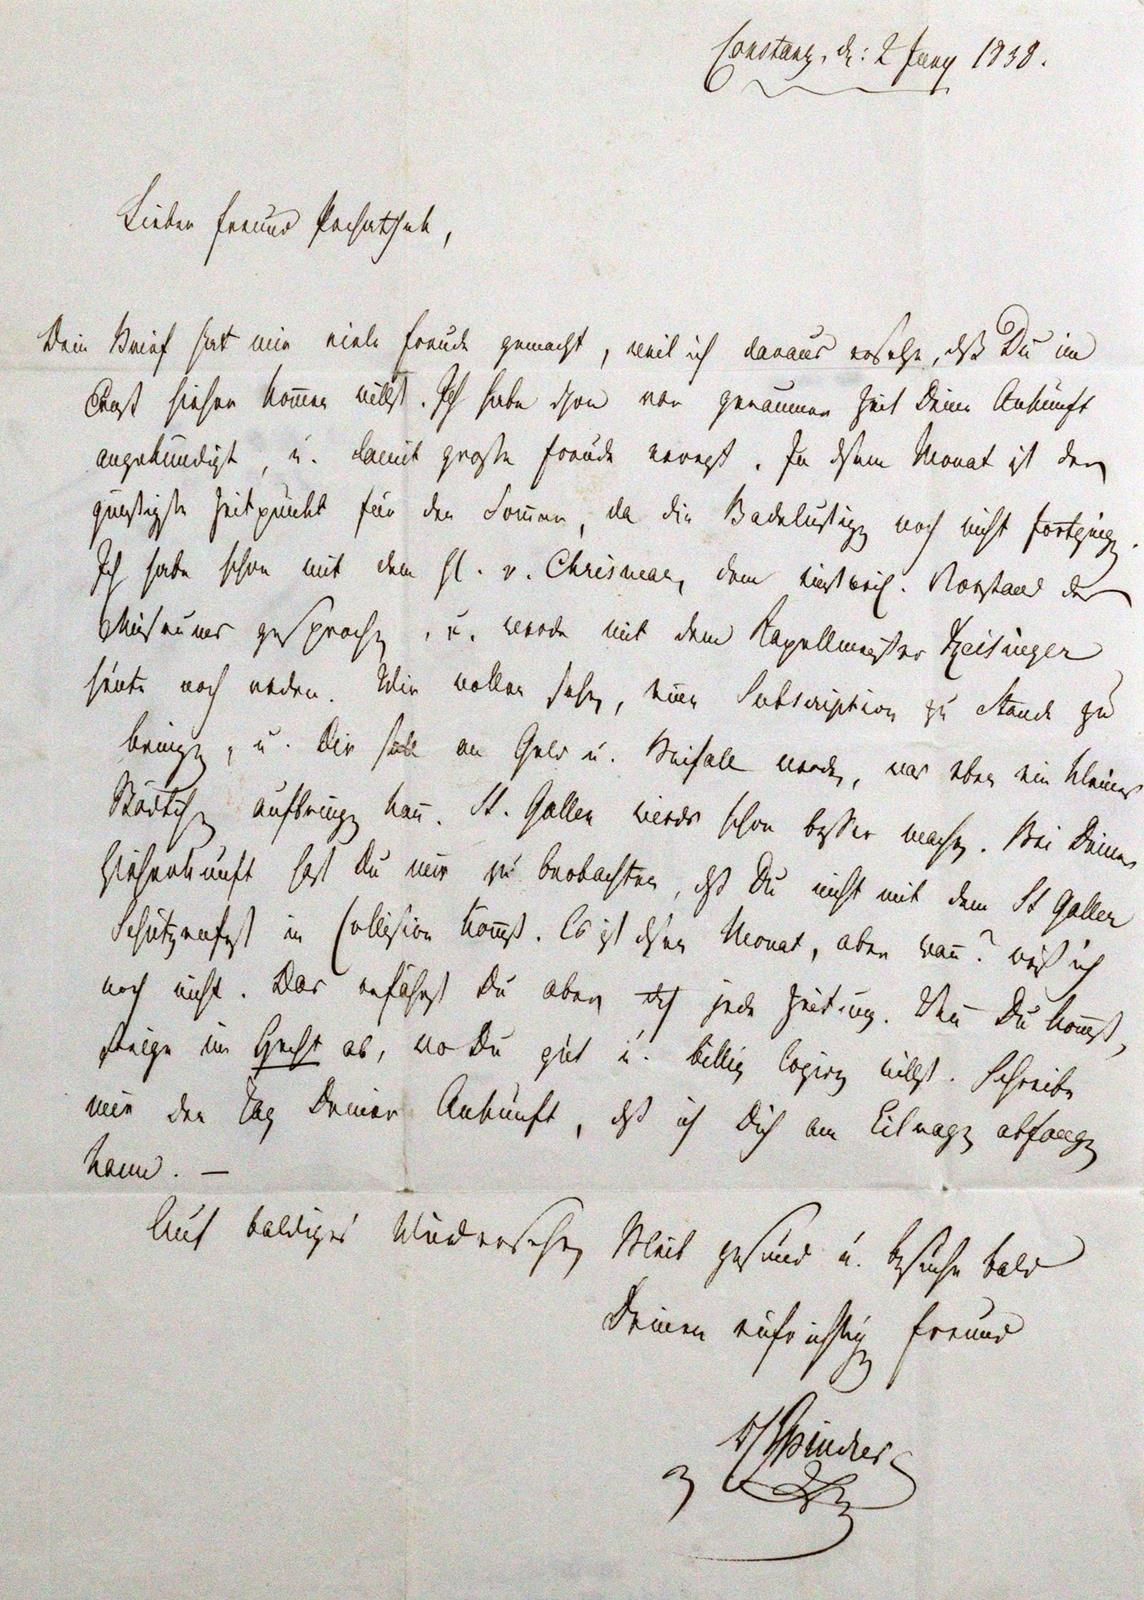 Constanz, d: 2 Juny 1838.
Lieber Freund Pechatschek,
Dein Brief hat mir viele Freude gemacht, weil ich daraus ersehe, dß Du im
Ernst hieher kommen willst. Ich habe schon vor geraumer Zeit Deine Ankunft
angekündigt, u. damit große Freude erregt. In dsem Monat ist der
günstigste Zeitpunkt für den Sommer, da die Badelustigen noch nicht fort
Ich habe schon mit dem H. v. Chrismar, dem Vorstand des
Museums gesprochen, u. werde mit dem Kapellmeister
heute noch reden. Wir wollen sehen, eine Subscription zu Stande zu
bringen, u. Dir soll an Geld u. Beifall werden, was eben ein kleines
Städtchen aufbringen kann. St. Gallen wirds schon besser machen. Bei Deiner
Hieherkunft hast Du nur zu beobachten, dß Du nicht mit dem St Galler
Schützenfest in Collision kommst. Es ist dsen Monat, aber wann? weiß ich
noch nicht. Das erfährst Du aber dch jede Zeitung. Wenn Du kommst,
steige im Hecht ab, wo Du gut u. billig logiren willst. Schreibe
mir den Tag Deiner Ankunft, dß ich Dich am Eilwagen abfangen
kann. —
Auf baldiges Wiedersehen Bleib gesund u. besuche bald
Deinen aufrichtigen Freund
Spindler